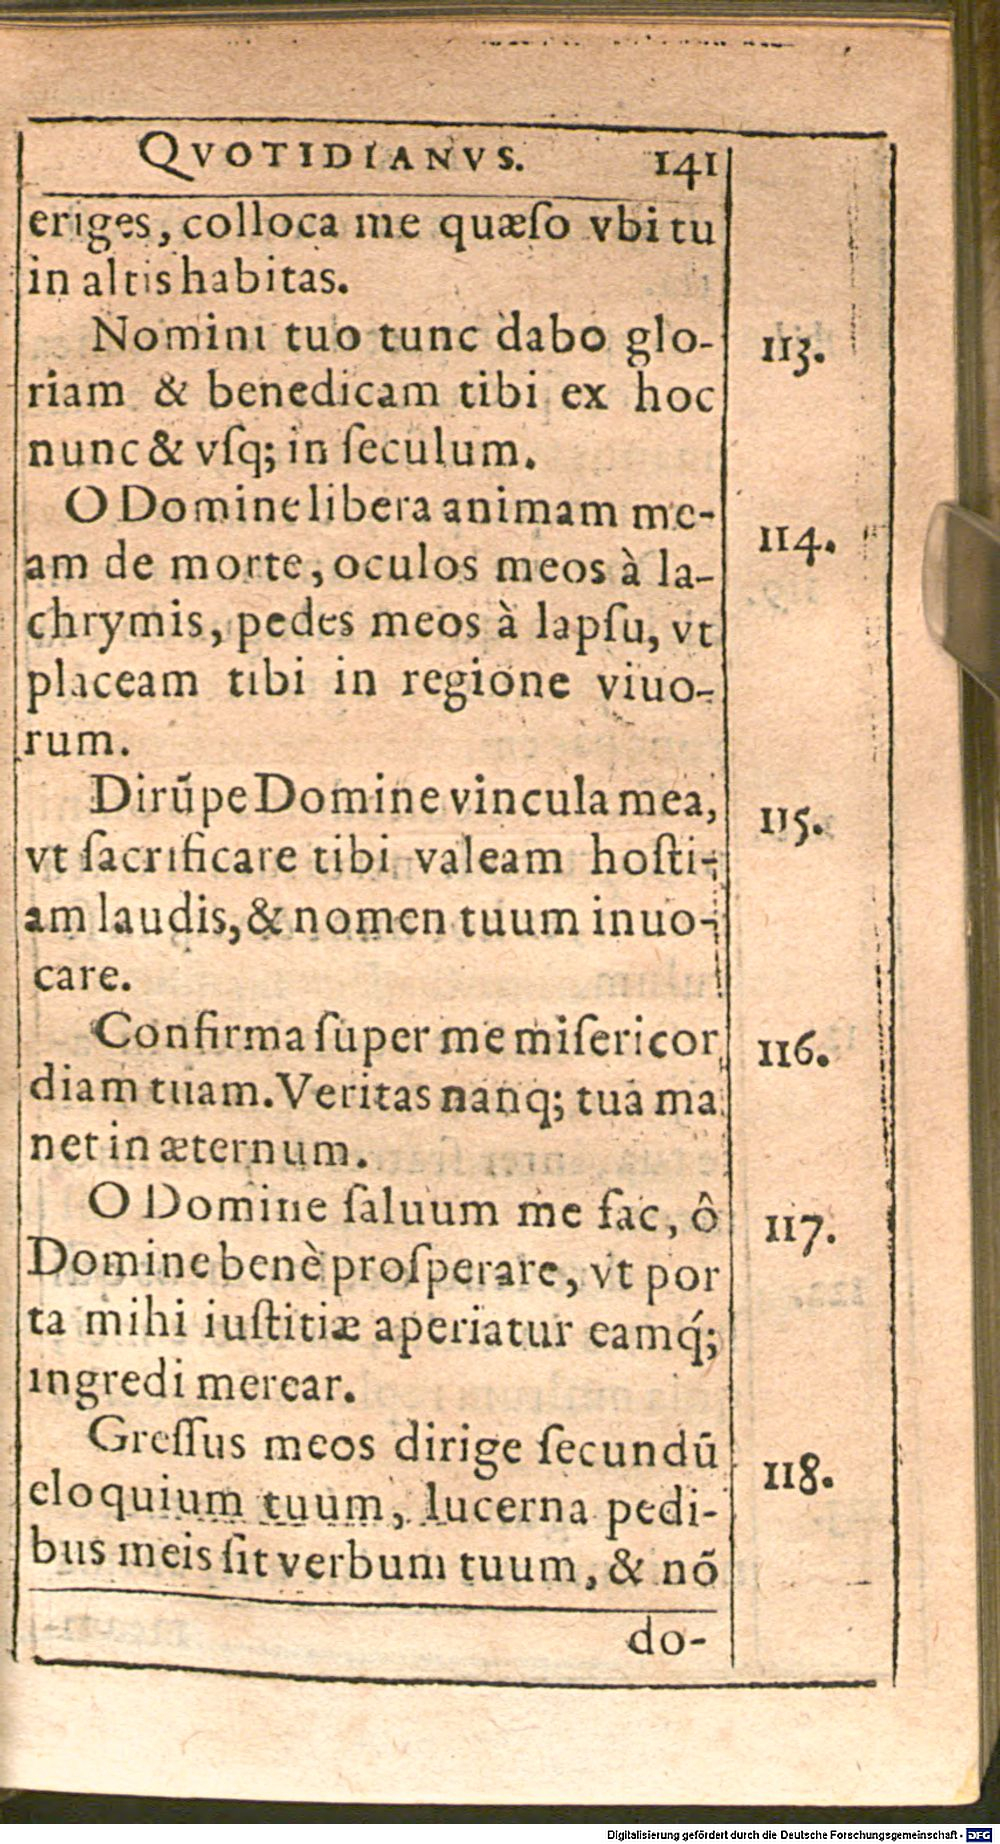 QVOTIDIANVS. 141
eriges, colloca me quæſo vbi tu
in altis habitas.
Nomini tuo tunc dabo glo- 113.
riam & benedicam tibi ex hoc
nunc & vſq; in ſeculum.
O Domine libera animam me- 114.
am de morte, oculos meos à la-
chrymis, pedes meos à lapſu, vt
placeam tibi in regione viuo-
rum.
Dirūpe Domine vincula mea, 115.
vt ſacrificare tibi valeam hoſti-
am laudis, & nomen tuum inuo-
care.
Confirma ſuper me miſericor 116.
diam tuam. Veritas nanq; tua ma
net in æternum.
O Domine ſaluum me fac, ô 117.
Domine benè proſperare, vt por
ta mihi iuſtitiæ aperiatur eamq́;
ingredi merear.
Greſſus meos dirige ſecundū 118.
eloquium tuum, lucerna pedi-
bus meis ſit verbum tuum, & nō
do-
Digitalisierung gefördert durch die Deutsche Forschungsgemeinschaft - DFG